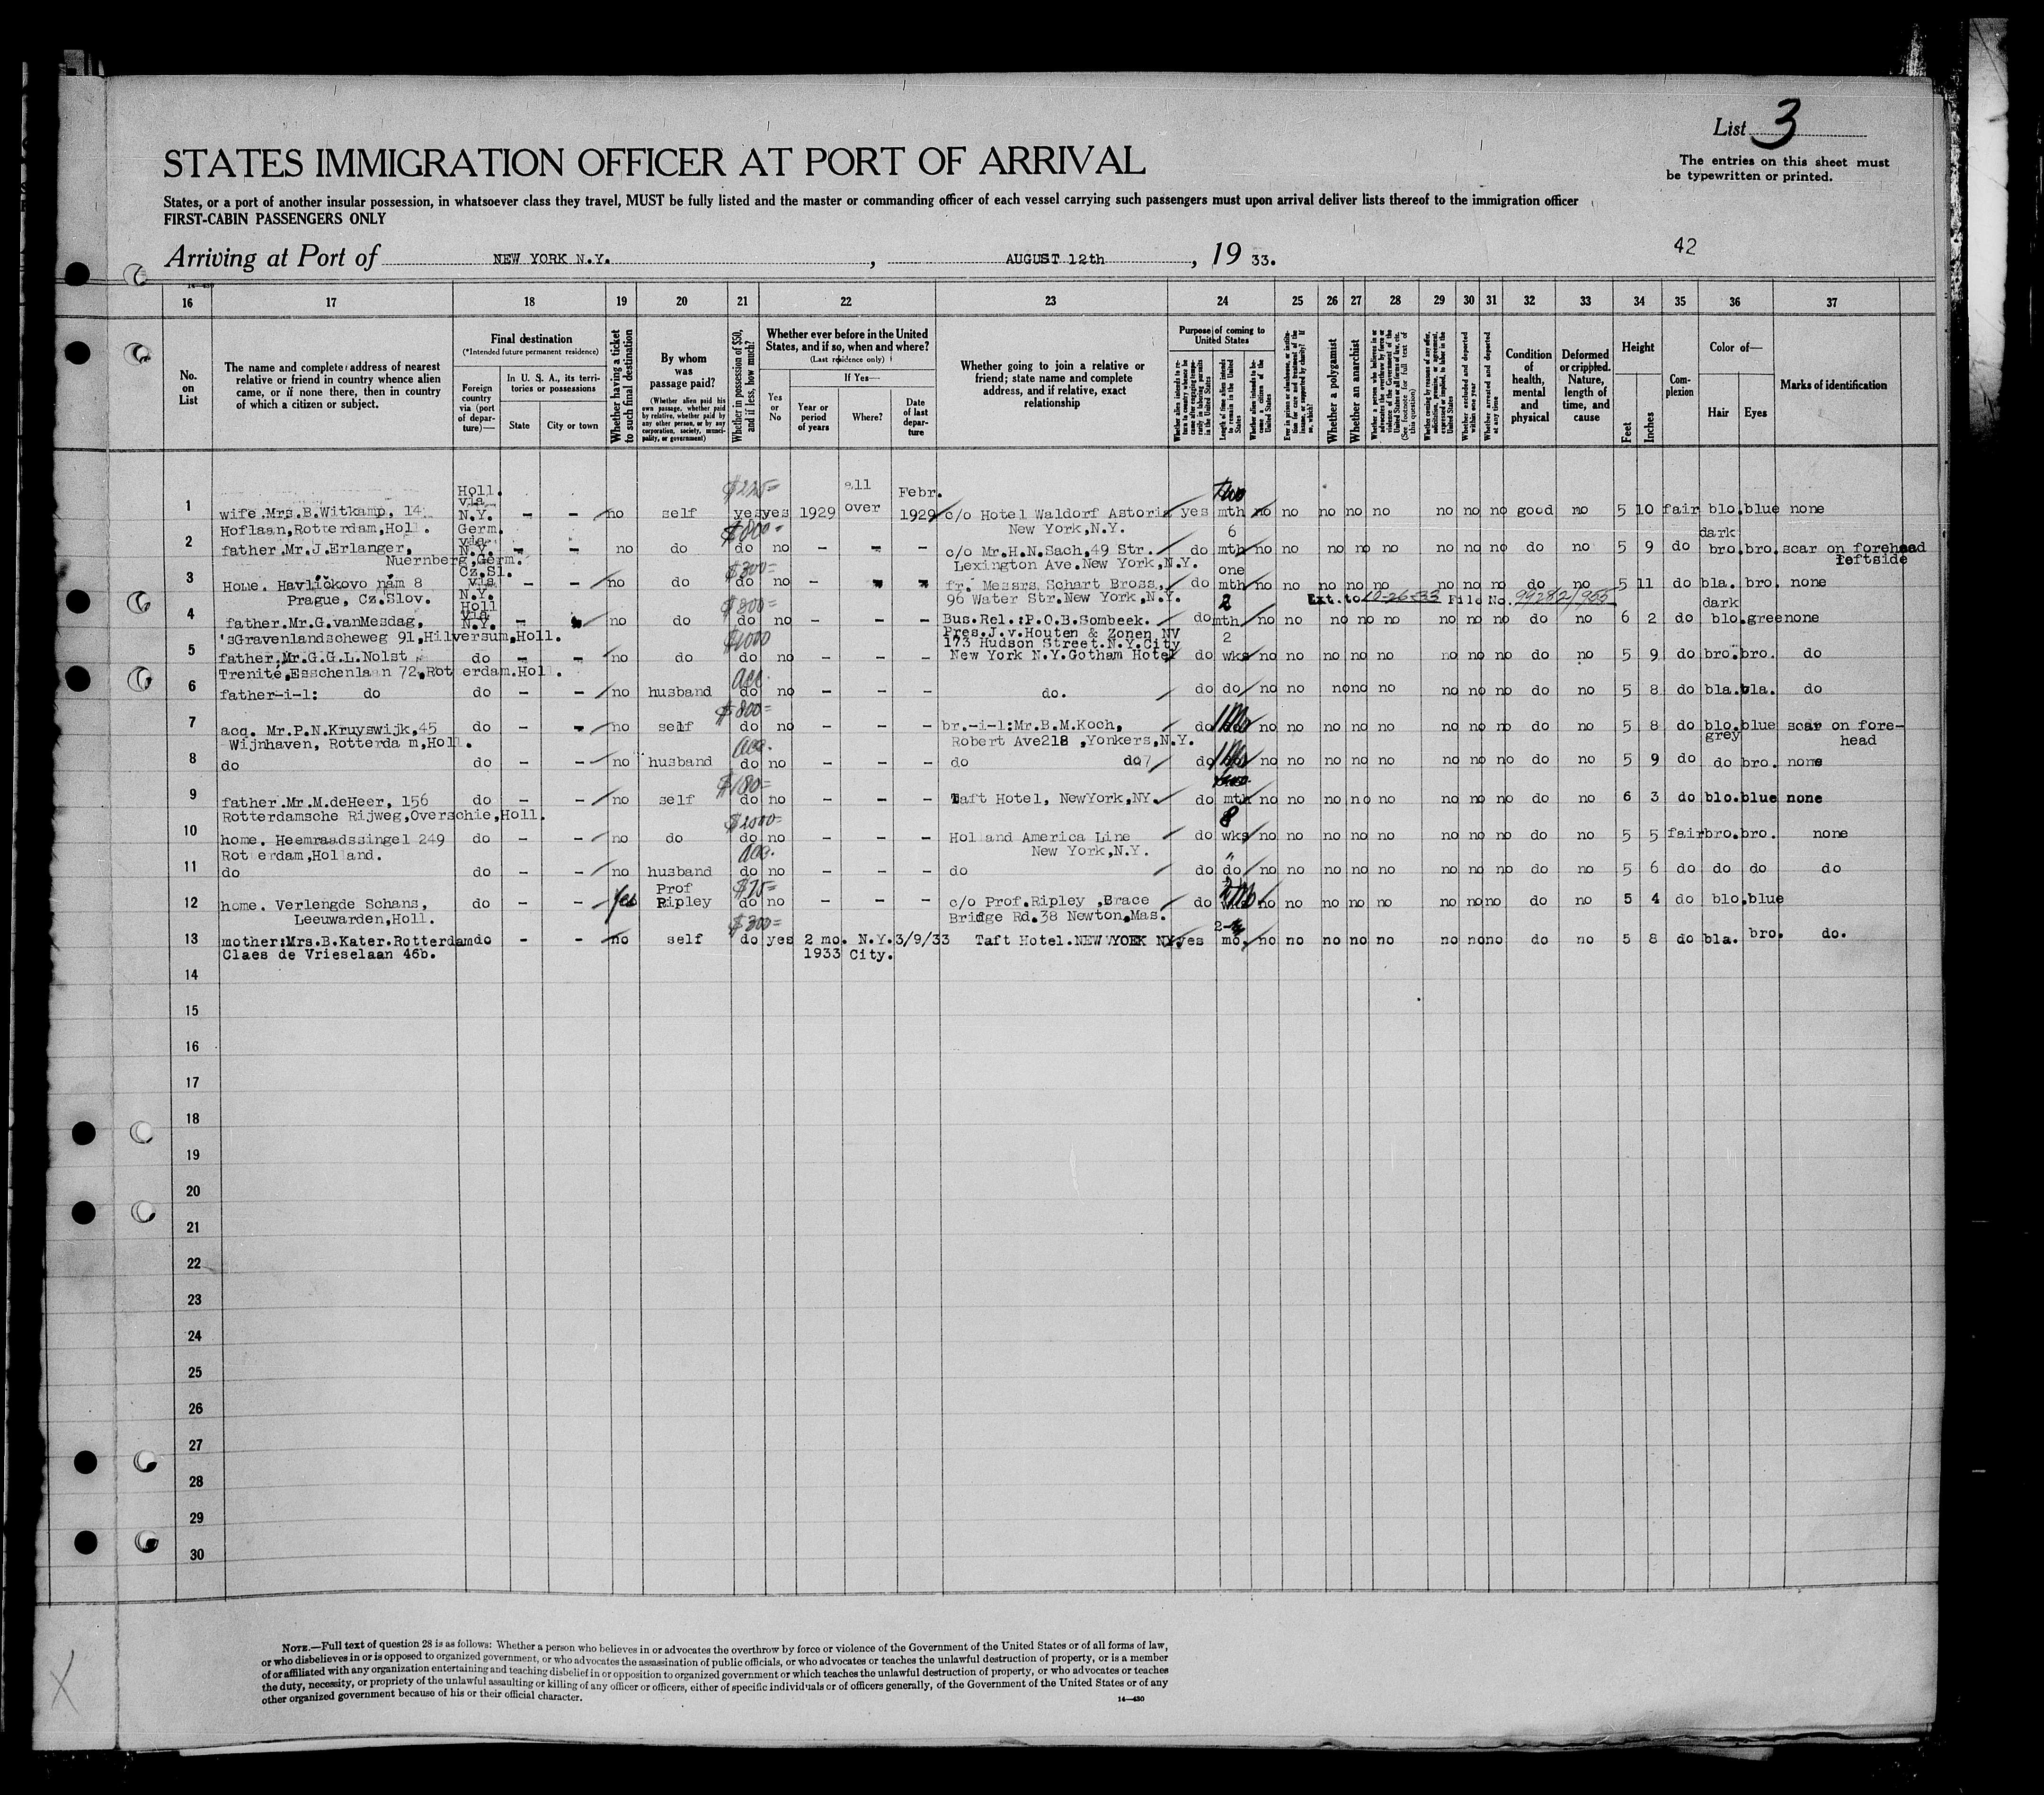 List 3
The entries on this sheet must
be typewritten or printed.
STATES IMMIGRATION OFFICER AT PORT OF ARRIVAL
States, or a port of another insular possession, in whatsoever class they travel, MUST be fully listed and the master or commanding officer of each vessel carrying such passengers must upon arrival deliver lists thereof to the immigration officer
FIRST-CABIN PASSENGERS ONLY
Arriving at Port of NEW YORK N.Y. , AUGUST 12th , 19 33.
42
16 17 18 19 20 21 22 23 24 25 26 27 28 29 30 31 32 33 34 35 36 37
No. on List
The name and complete address of nearest
relative or friend in country whence alien
came, or if none there, then in country
of which a citizen or subject.
Final destination
(*Intended future permanent residence)
Foreign country via (port of departure)—
In U. S. A., its territories or possessions
State
City or town
Whether having a ticket to such final destination
By whom was passage paid?
(Whether alien paid his own passage, whether paid by relative, whether paid by any other person, or by any corporation, society, municipality, or government)
Whether in possession of $50, and if less, how much?
Whether ever before in the United
States, and if so, when and where?
(Last residence only)
Yes or No
If Yes—
Year or period of years
Where?
Date of last departure
Whether going to join a relative or
friend; state name and complete
address, and if relative, exact
relationship
Purpose of coming to United States
Whether alien intends to return to country whence he came after engaging temporarily in laboring pursuits in the United States
Length of time alien intends to remain in the United States
Whether alien intends to become a citizen of the United States
Ever in prison or almshouse, or institution for care and treatment of the insane, or supported by charity? If so, which?
Whether a polygamist
Whether an anarchist
(See footnote for full text of this question)
Whether excluded and deported within one year
Whether arrested and deported at any time
Condition of health, mental and physical
Deformed or crippled. Nature, length of time, and cause
Height
Feet
Inches
Complexion
Color of—
Hair
Eyes
Marks of identification
1 wife.Mrs.B.Witkamp, 14 Holl. via N.Y. – – no self yes yes 1929 all over Febr. 1929 c/o Hotel Waldorf Astoria yes two mth no no no no no no no no good no 5 10 fair blo. blue none
Hoflaan,Rotterdam,Holl. New York,N.Y.
2 father.Mr.J.Erlanger, Germ. via N.Y. – – no do $800= do no – – – c/o Mr.H.N.Sach,49 Str. do 6 mth no no no no no no no no do no 5 9 do dark bro. bro. scar on forehead
Nuernberg,Germ. Lexington Ave.New York,N.Y. leftside
3 Home. Havlíčkovo nám 8 Cz.Sl. via N.Y. – – no do $300= do no – fr. Messrs Schart Bross, do one mth no no no no no no no no do no 5 11 do bla. bro. none
Prague, Cz.Slov. 96 Water Str.New York,N.Y. Ext. to 10-26-33 File No. 99282/955
4 father.Mr.G.vanMesdag, Holl via N.Y. – no do $800= do no – – – Bus.Rel.:P.O.B.Sombeek. do 2 mth no no no no no no no no do no 6 2 do dark blo. gree none
'sGravenlandscheweg 91,Hilversum,Holl. Pres.J.v.Houten & Zonen NV
173 Hudson Street.N.Y.City
5 father.Mr.G.G.L.Nolst do – – no do $1000 do no – – – New York N.Y.Gotham Hotel do 2 wks no no no no no no no no do no 5 9 do bro. bro. do
Trenité,Esschenlaan 72,Rotterdam.Holl.
6 father-i-l: do do – – no husband acc. do no – – – do. do do no no no no no no no no do no 5 8 do bla. bla. do
7 acq. Mr.P.N.Kruyswijk,45 do – – no self $800= do no – – – br.-i-l:Mr.B.M.Koch, do no no no no no no no no do no 5 8 do blo. blue scar on fore-
Wijnhaven, Rotterdam,Holl. Robert Ave218 ,Yonkers,N.Y. head
8 do do – – no husband acc. do no – – – do do do no no no no no no no no do no 5 9 do grey do bro. none
9 father.Mr.M.deHeer, 156 do – – no self $180= do no – – – Taft Hotel, NewYork,NY. do mth no no no no no no no no do no 6 3 do blo. blue none
Rotterdamsche Rijweg,Overschie,Holl.
10 home. Heemraadssingel 249 do – – no do do no – – – Holland America Line do 8 wks no no no no no no no no do no 5 5 fair bro. bro. none
Rotterdam,Holland. New York,N.Y.
11 do do – – no husband acc. do no – – – do do do no no no no no no no no do no 5 6 do do do do
12 home. Verlengde Schans, do – – Yes Prof Ripley $75= do no – – – c/o Prof.Ripley ,Brace do no no no no no no no no do no 5 4 do blo. blue
Leeuwarden,Holl. Bridge Rd.38 Newton,Mas.
13 mother:Mrs.B.Kater.Rotterdam do – – no self $300= do yes 2 mo. 1933 N.Y. City. 3/9/33 Taft Hotel.NEW YORK NY. yes 2 mo. no no no no no no no no do no 5 8 do bla. bro. do.
Claes de Vrieselaan 46b.
14
15
16
17
18
19
20
21
22
23
24
25
26
27
28
29
30
NOTE.—Full text of question 28 is as follows: Whether a person who believes in or advocates the overthrow by force or violence of the Government of the United States or of all forms of law,
or who disbelieves in or is opposed to organized government, or who advocates the assassination of public officials, or who advocates or teaches the unlawful destruction of property, or is a member
of or affiliated with any organization entertaining and teaching disbelief in or opposition to organized government or which teaches the unlawful destruction of property, or who advocates or teaches
the duty, necessity, or propriety of the unlawful assaulting or killing of any officer or officers, either of specific individuals or of officers generally, of the Government of the United States or of any
other organized government because of his or their official character.
14—430